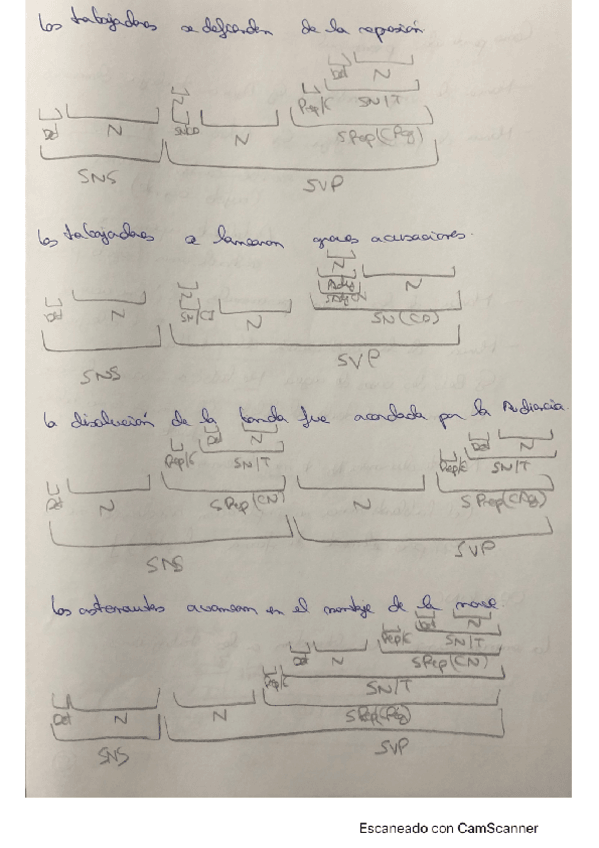 Los trabajadores se defienden de la represión
Det N
Prep/E SN/T
Det N SNCD N SPrep(CReg)
SNS SVP
Los trabajadores se lanzaron graves acusaciones.
N
Det N SN/CI N N
SN(CD)
SNS SVP
La disolución de la banda fue acordada por la Audiencia
Det N Det N
Prep/E SN/T Prep/E SN/T
Det N SPrep(CN) N SPrep(CAg)
SNS SVP
Los astronautas avanzan en el montaje de la nave
Det N
Det N Prep/E SN/T
Prep/E SPrep(CN)
SN/T
Det N N SPrep(CReg)
SNS SVP
Escaneado con CamScanner